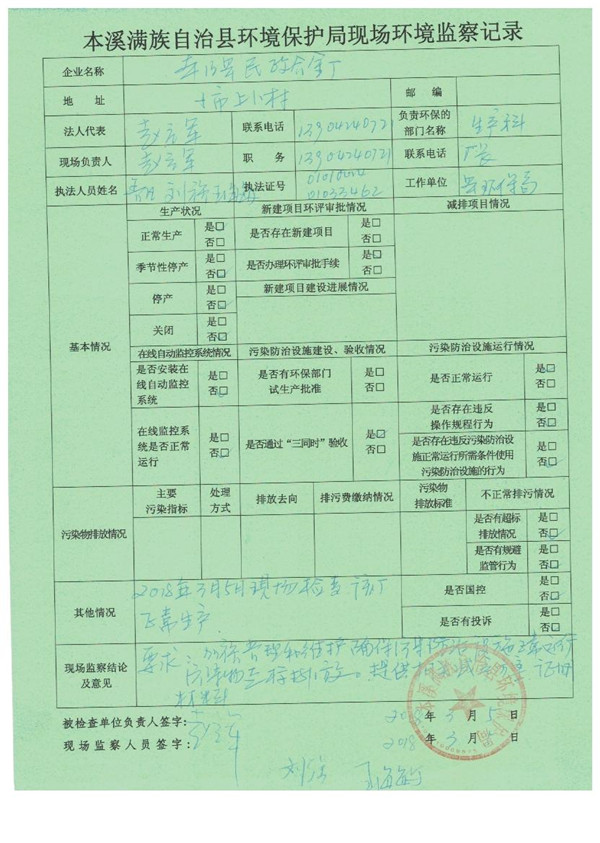 本溪满族自治县环境保护局现场环境监察记录
企业名称 县民政合金厂
地 址 小市上小村 邮 编
法人代表 联系电话 13904240721 负责环保的部门名称 生产科
现场负责人 职 务 13904240721 联系电话 厂长
执法人员姓名 执法证号 工作单位 县环保局
01033462
基本情况
生产状况 新建项目环评审批情况 减排项目情况
正常生产 是□ 否□ 是否存在新建项目 是□ 否□
季节性停产 是□ 否□ 是否办理环评审批手续 是□ 否□
停产 是□ 否□ 新建项目建设进展情况
关闭 是□ 否□
在线自动监控系统情况 污染防治设施建设、验收情况 污染防治设施运行情况
是否安装在线自动监控系统 是□ 否□ 是否有环保部门试生产批准 是□ 否□ 是否正常运行 是□ 否□
在线监控系统是否正常运行 是□ 否□ 是否通过“三同时”验收 是□ 否□ 是否存在违反操作规程行为 是□ 否□
是否存在违反污染防治设施正常运行所需条件使用污染防治设施的行为 是□ 否□
污染物排放情况
主要污染指标 处理方式 排放去向 排污费缴纳情况 污染物排放标准 不正常排污情况
是否有超标排放情况 是□ 否□
是否有规避监管行为 是□ 否□
其他情况 2018年3月5日现场检查该厂 是否国控 是□ 否□
正常生产 是否有投诉 是□ 否□
现场监察结论及意见 要求：加强管理和维护确保
污染物达标排放。提供相关
材料
被检查单位负责人签字： 2018 年 3 月 5 日
现场监察人员签字： 2018 年 3 月 5 日